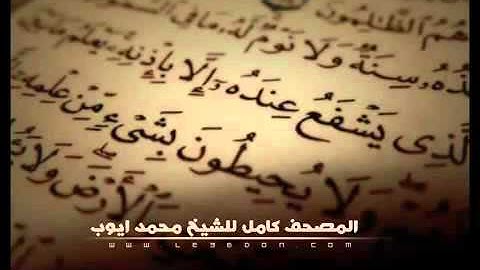 هُمُ ٱلظَّٰلِمُونَ
سِنَةٌ وَلَا نَوْمٌ لَّهُۥ مَا فِى
لَّذِى يَشْفَعُ عِندَهُۥٓ إِلَّا بِإِذْنِهِۦ يَعْلَمُ مَا
وَلَا يُحِيطُونَ بِشَىْءٍ مِّنْ عِلْمِهِ
ٱلْأَرْضَ وَلَا
المصحف كامل للشيخ محمد ايوب
www.legedon.com